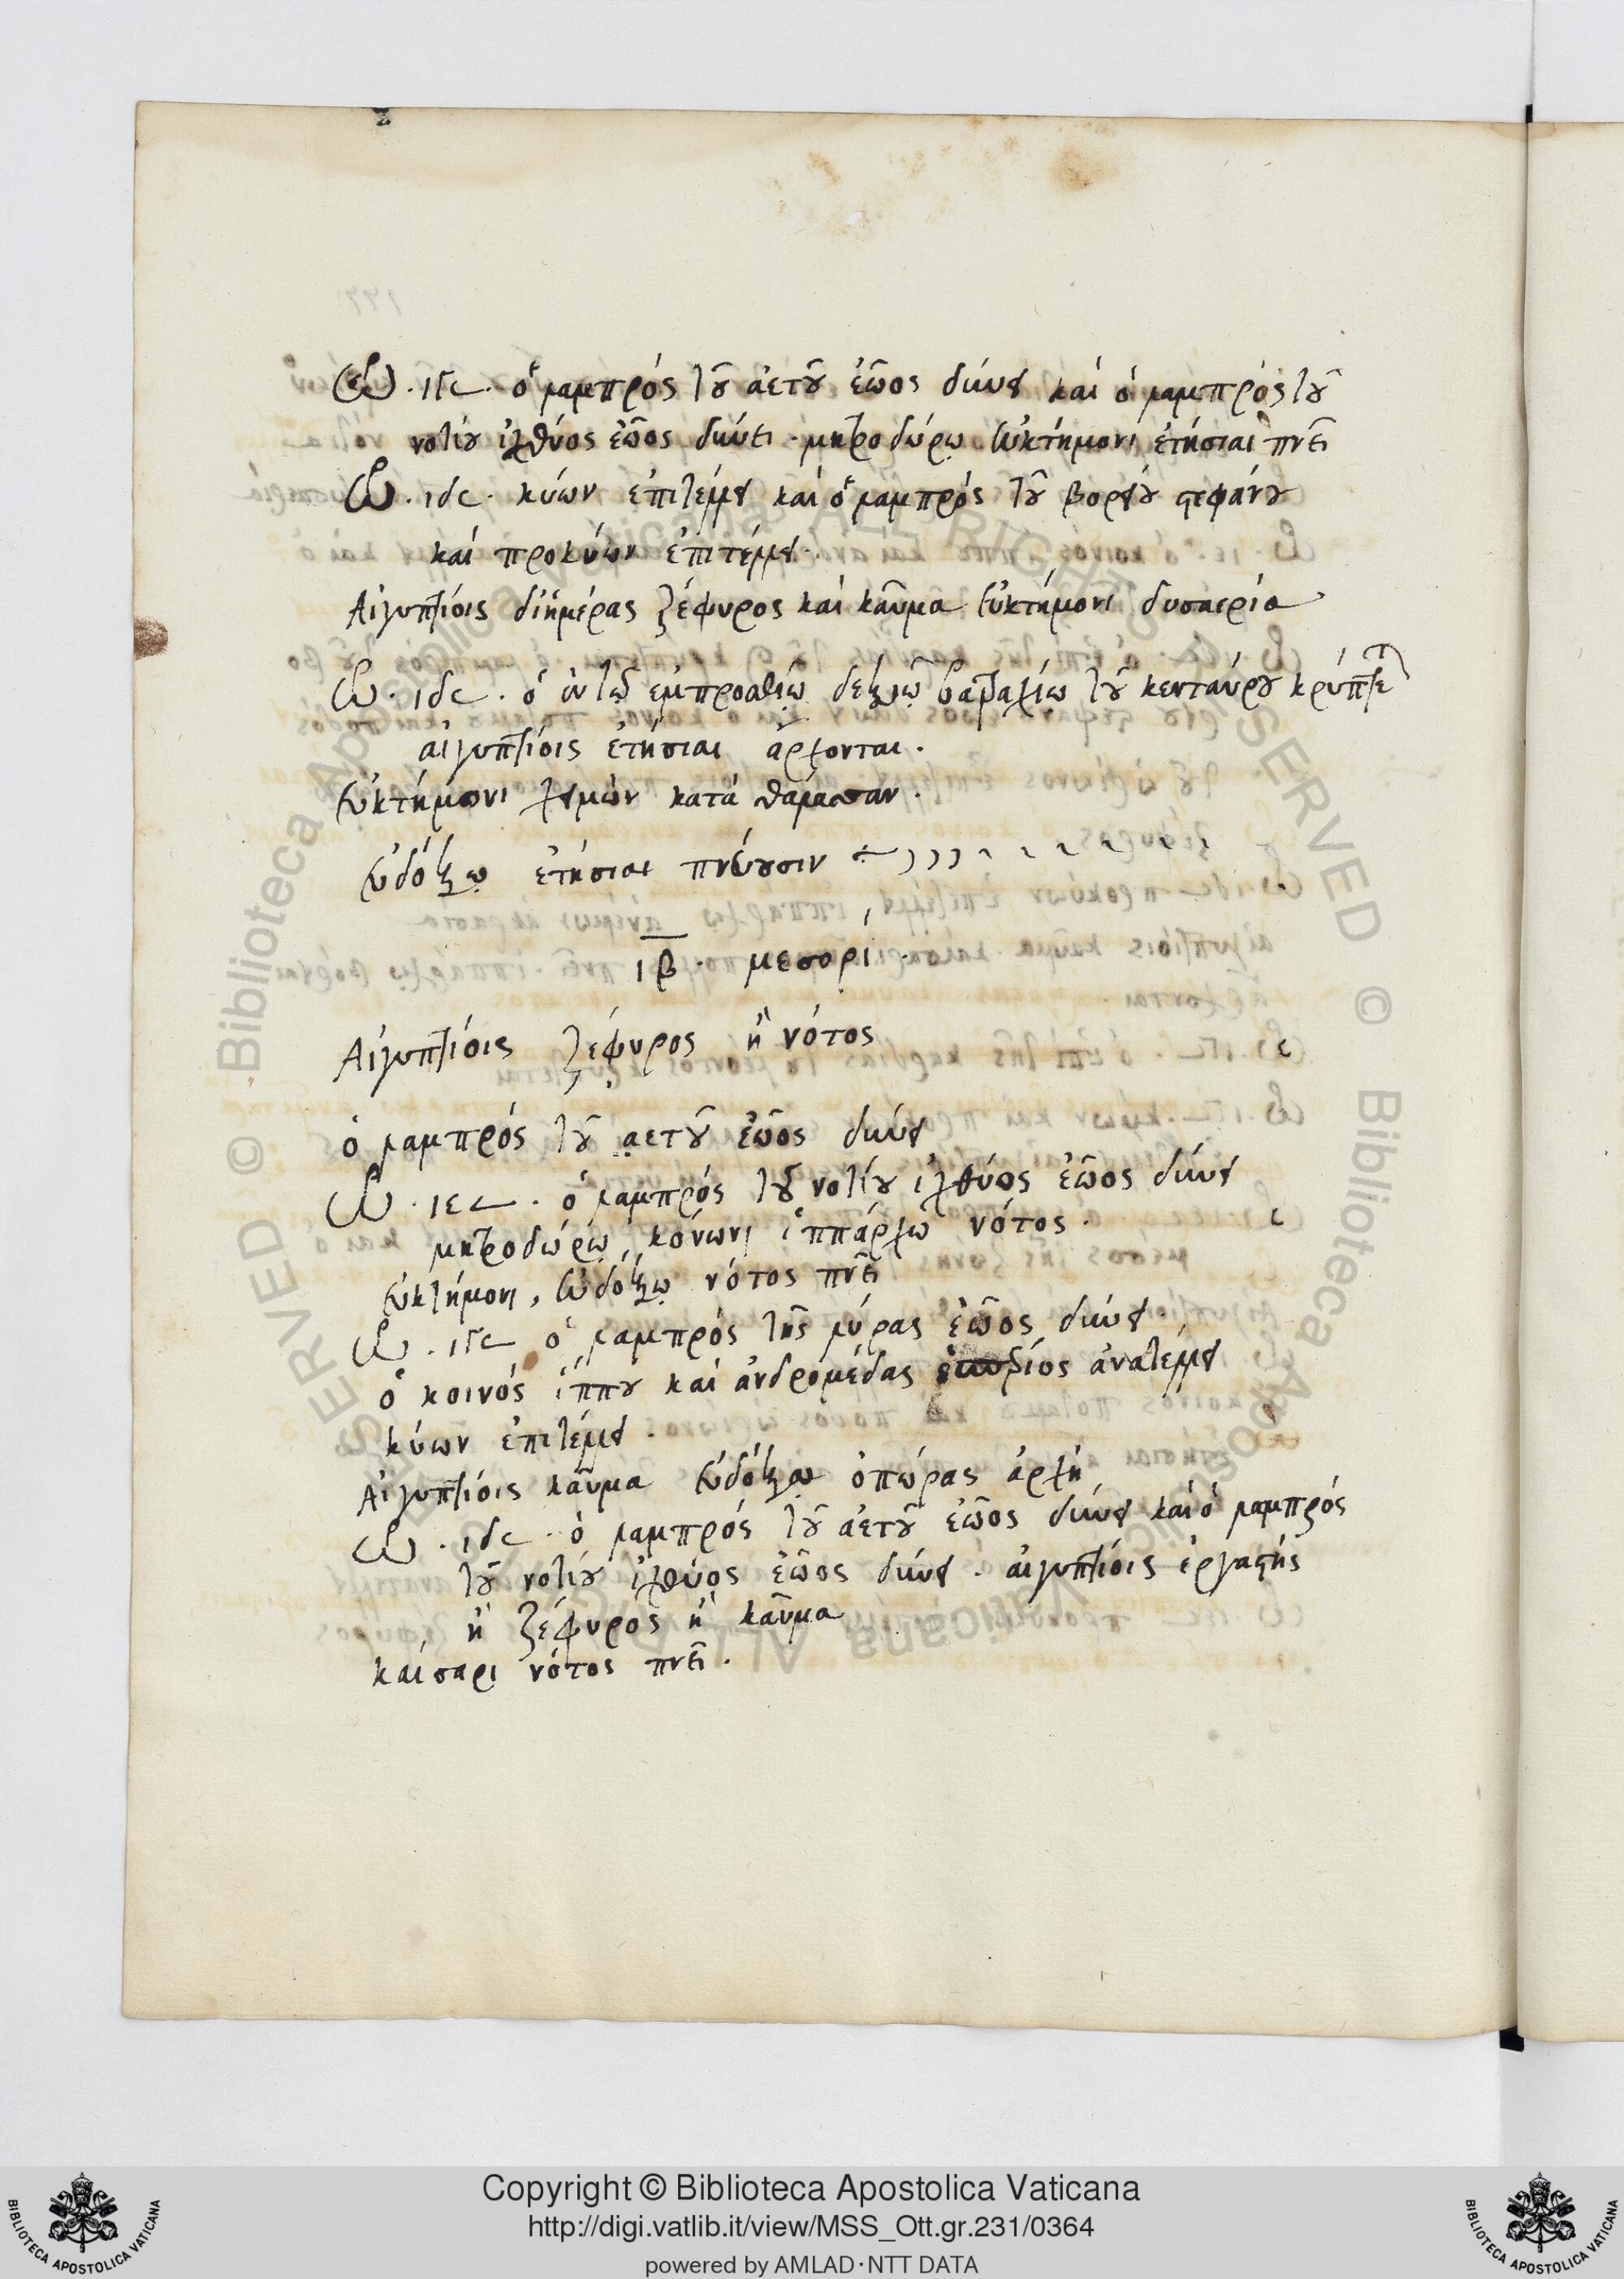 ὡ. ιγ𐅵. ὁ λαμπρός τοῦ ἀετοῦ ἑῶος δύνει καί ὁ λαμπρός τοῦ
νοτίου ἰχθύος ἑῶος δύνει. μητροδώρῳ εὐκτήμονι ἐτησίαι πνεῖ
ὡ. ιδ𐅵. κύων ἐπιτέλλει καί ὁ λαμπρός τοῦ βορείου στεφάνου
καί προκύων ἐπιτέλλει.
Αἰγυπτίοις διημέρας ζέφυρος καί καῦμα εὐκτήμονι δυσαερία
ὡ. ιδ𐅵. ὁ ἐν τῶ ἐμπροσθίω δεξιῶ βατραχίω τοῦ κενταύρου κρύπτε τ
αἰγυπτίοις ἐτησίαι ἄρχονται.
εὐκτήμονι χειμών κατά θάλασσαν.
εὐδόξῳ ἐτησίαι πνέουσιν
ιβ. μεσορί.
Αἰγυπτίοις ζέφυρος ἤ νότος
ὁ λαμπρός τοῦ ἀετοῦ ἑῶος δύνει
ὡ. ιε𐅵. ὁ λαμπρός τοῦ νοτίου ἰχθύος ἑῶος δύνει
μητροδώρῳ, κόνωνι ἱππάρχω νότος.
εὐκτήμονι, εὐδόξῳ νότος πνεῖ
ὡ. ιγ𐅵 ὁ λαμπρός τῆς λύρας ἑῶος δύνει.
ὁ κοινός ἵππου καί ἀνδρομέδας ἀνατέλλει
κύων ἐπιτέλλει.
Αἰγυπτίοις καῦμα εὐδόξῳ ὀπώρας ἀρχή
ὡ. ιδ𐅵. ὁ λαμπρός τοῦ ἀετοῦ ἑῶος δύνει καί ὁ λαμπρός
τοῦ νοτίου ἰχθύος ἑῶος δύνει. αἰγυπτίοις ἐργαστής
ἤ ζέφυρος ἤ καῦμα
καίσαρι νότος πνεῖ.
Copyright © Biblioteca Apostolica Vaticana
http://digi.vatlib.it/view/MSS_Ott.gr.231/0364
powered by AMLAD·NTT DATA
BIBLIOTECA APOSTOLICA VATICANA
BIBLIOTECA APOSTOLICA VATICANA